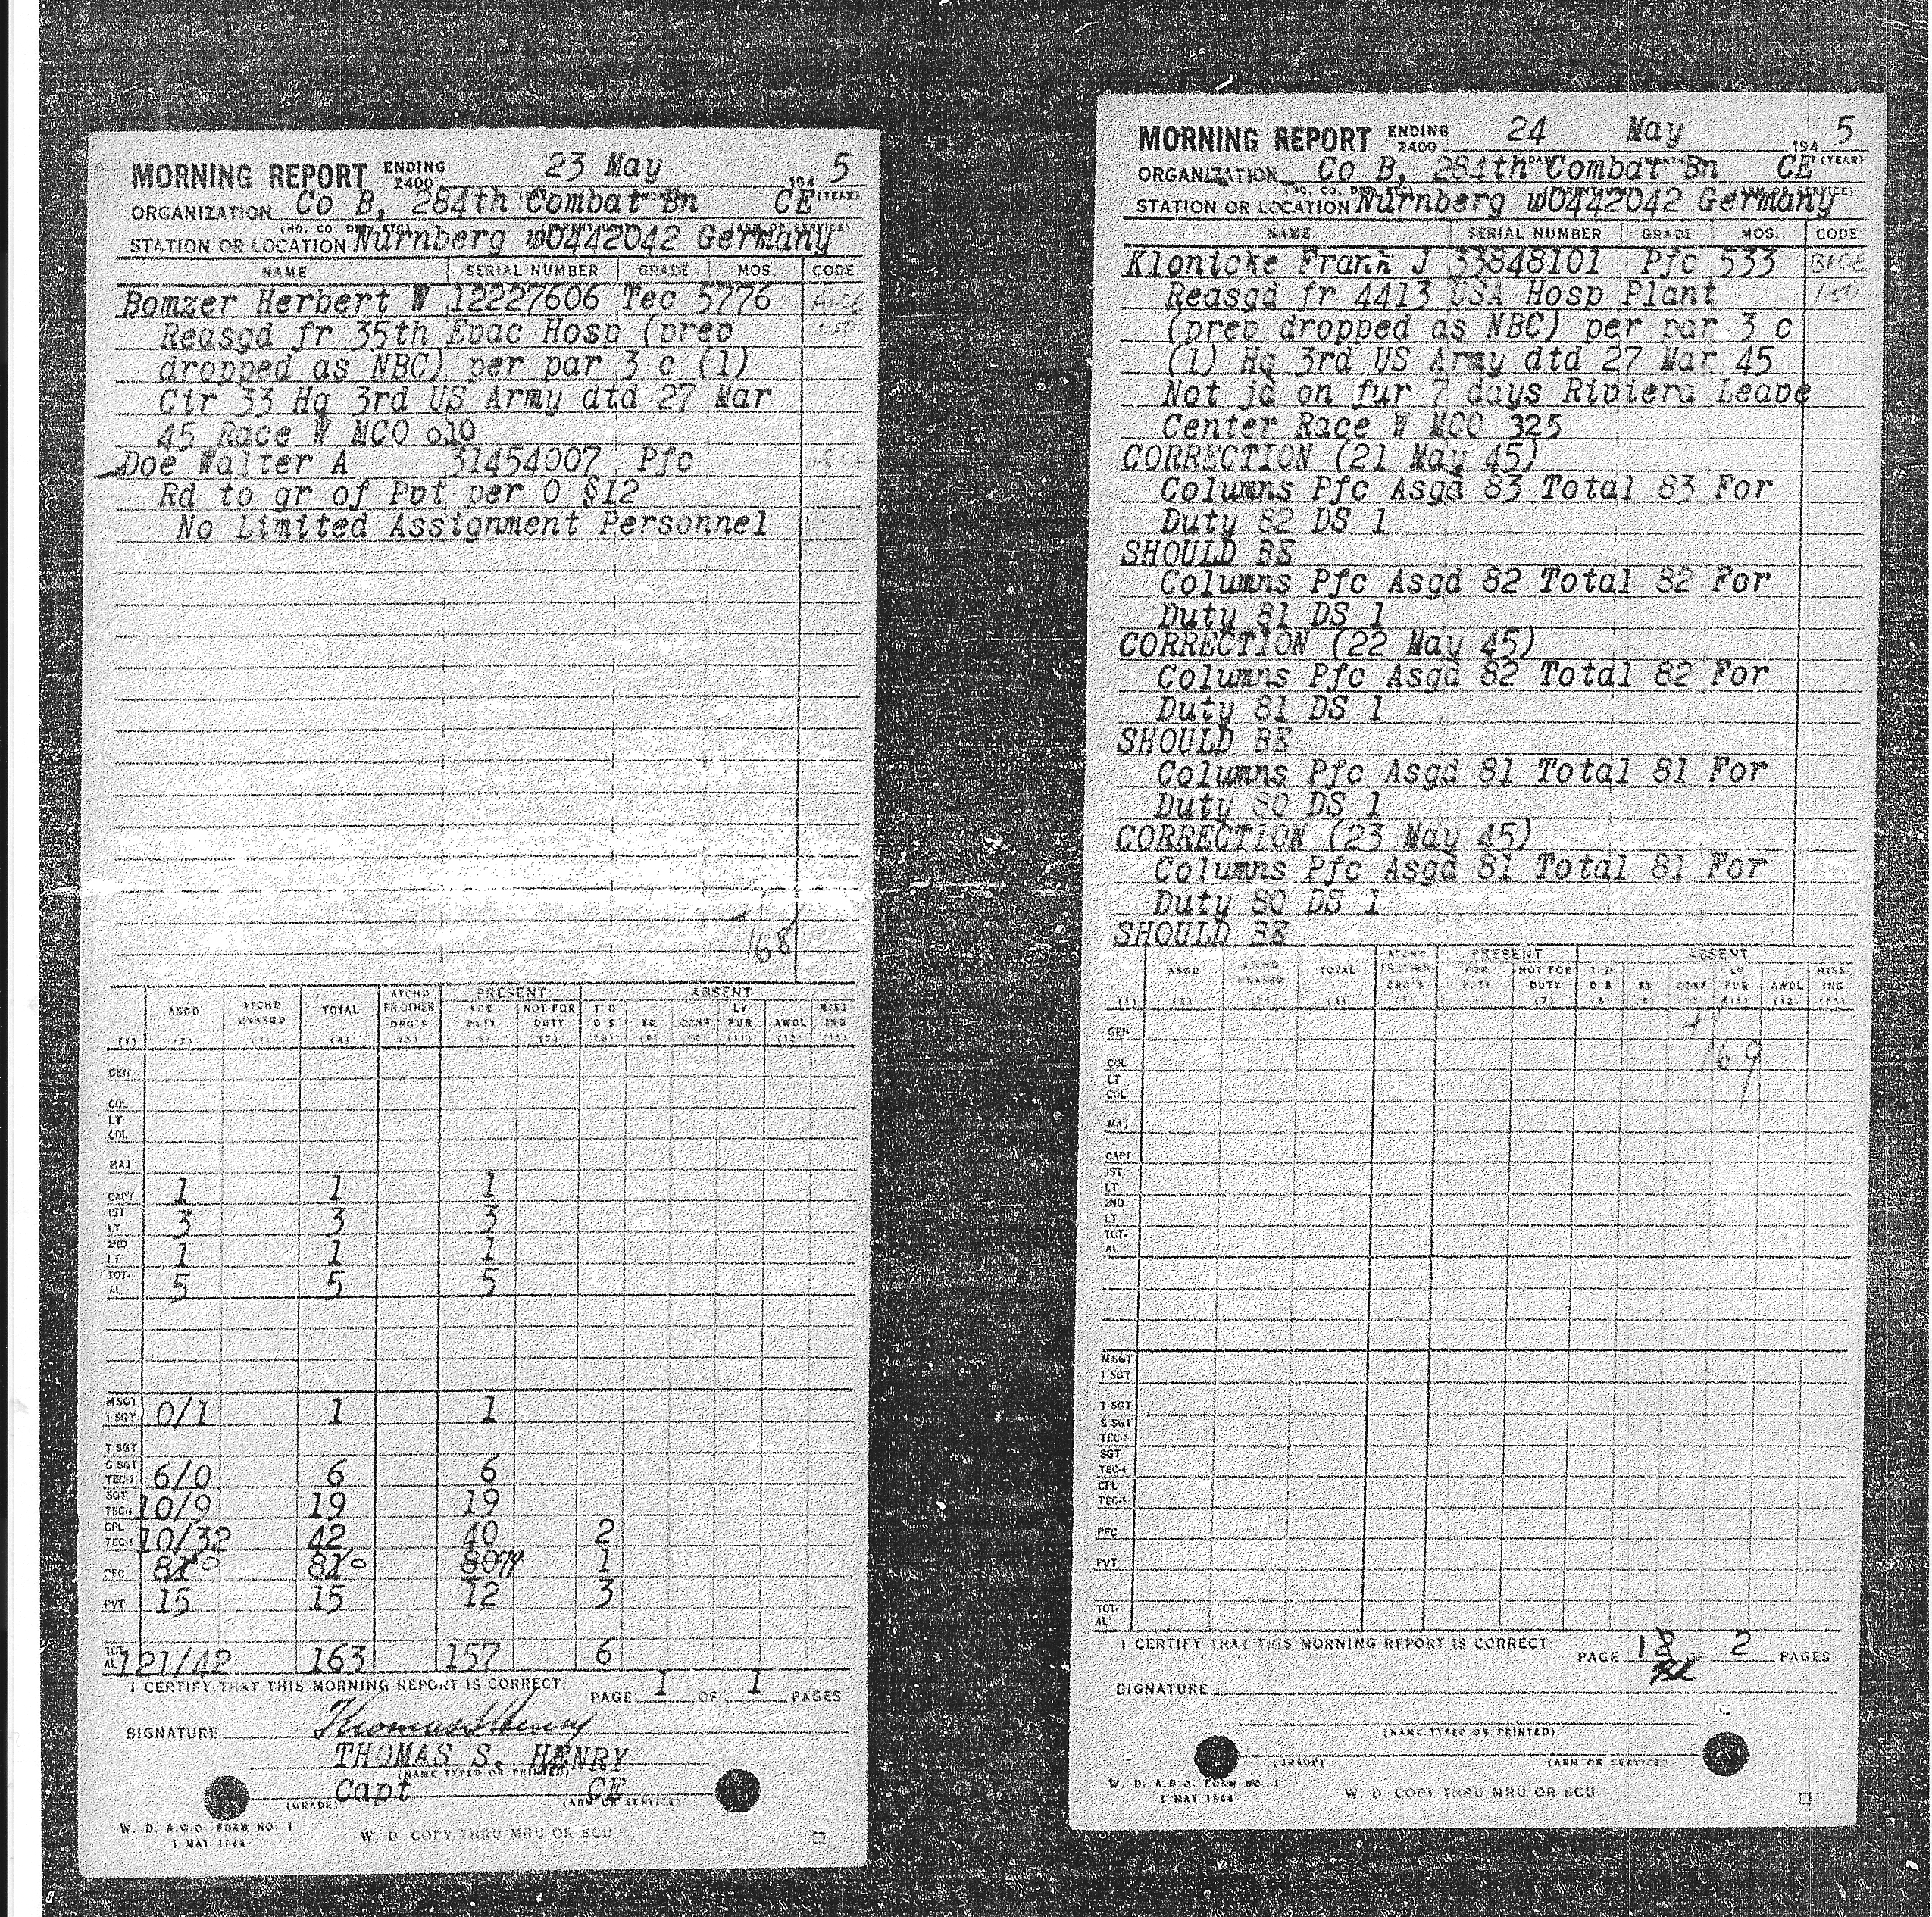 MORNING REPORT ENDING 2400 23 May 194 5
ORGANIZATION Co B, 284th Combat Bn CE
STATION OR LOCATION Nurnberg wO442042 Germany
NAME SERIAL NUMBER GRADE MOS. CODE
Bomzer Herbert W 12227606 Tec 5776
Reasgd fr 35th Evac Hosp (prev
dropped as NBC) per par 3 c (1)
Cir 33 Hq 3rd US Army dtd 27 Mar
45 Race W MCO 010
Doe Walter A 31454007 Pfc
Rd to gr of Pvt per O §12
No Limited Assignment Personnel
168
PRESENT ABSENT
ASGD ATCHD UNASGD TOTAL ATCHD FR.OTHER ORG'S FOR DUTY NOT FOR DUTY T D D S SK CONF LV FUR AWOL MISS-ING
(1) (2) (3) (4) (5) (6) (7) (8) (9) (11) (12) (13)
GEN
COL
LT COL
MAJ
CAPT 1 1 1
1ST LT 3 3 3
2ND LT 1 1 1
TOT-AL 5 5 5
MSGT 1 SGT 0/1 1 1
T SGT
S SGT TEC-3 6/0 6 6
SGT TEC-4 10/9 19 19
CPL TEC-5 10/32 42 40 2
PFC 810 810 8079 1
PVT 15 15 12 3
TOT-AL 121/42 163 157 6
I CERTIFY THAT THIS MORNING REPORT IS CORRECT. PAGE 1 OF 1 PAGES
SIGNATURE Thomas S Henry
THOMAS S. HENRY
(NAME TYPED OR PRINTED)
Capt CE
(GRADE) (ARM OR SERVICE)
W. D. A.G.O. FORM NO. 1
1 MAY 1944
W. D. COPY THRU MRU OR SCU
MORNING REPORT ENDING 2400 24 May 194 5
ORGANIZATION Co B, 284th Combat Bn CE
STATION OR LOCATION Nurnberg wO442042 Germany
NAME SERIAL NUMBER GRADE MOS. CODE
Klonicke Frank J 33848101 Pfc 533
Reasgd fr 4413 USA Hosp Plant
(prev dropped as NBC) per par 3 c
(1) Hq 3rd US Army dtd 27 Mar 45
Not jd on fur 7 days Riviera Leave
Center Race W MCO 325
CORRECTION (21 May 45)
Columns Pfc Asgd 83 Total 83 For
Duty 82 DS 1
SHOULD BE
Columns Pfc Asgd 82 Total 82 For
Duty 81 DS 1
CORRECTION (22 May 45)
Columns Pfc Asgd 82 Total 82 For
Duty 81 DS 1
SHOULD BE
Columns Pfc Asgd 81 Total 81 For
Duty 80 DS 1
CORRECTION (23 May 45)
Columns Pfc Asgd 81 Total 81 For
Duty 80 DS 1
SHOULD BE
PRESENT ABSENT
ASGD ATCHD UNASGD TOTAL ATCHD FR.OTHER ORG'S FOR DUTY NOT FOR DUTY T D D S SK CONF LV FUR AWOL MISS-ING
(1) (2) (3) (4) (5) (7) (8) (9) (11) (12) (13)
GEN
169
COL
LT COL
MAJ
CAPT
1ST LT
2ND LT
TOT-AL
M SGT
1 SGT
T SGT
S SGT
TEC-3
SGT
TEC-4
CPL
TEC-5
PFC
PVT
TOT-AL
I CERTIFY THAT THIS MORNING REPORT IS CORRECT. PAGE 1 OF 2 PAGES
SIGNATURE
(NAME TYPED OR PRINTED)
(GRADE) (ARM OR SERVICE)
W. D. A.G.O. FORM NO. 1
1 MAY 1944
W. D. COPY THRU MRU OR SCU